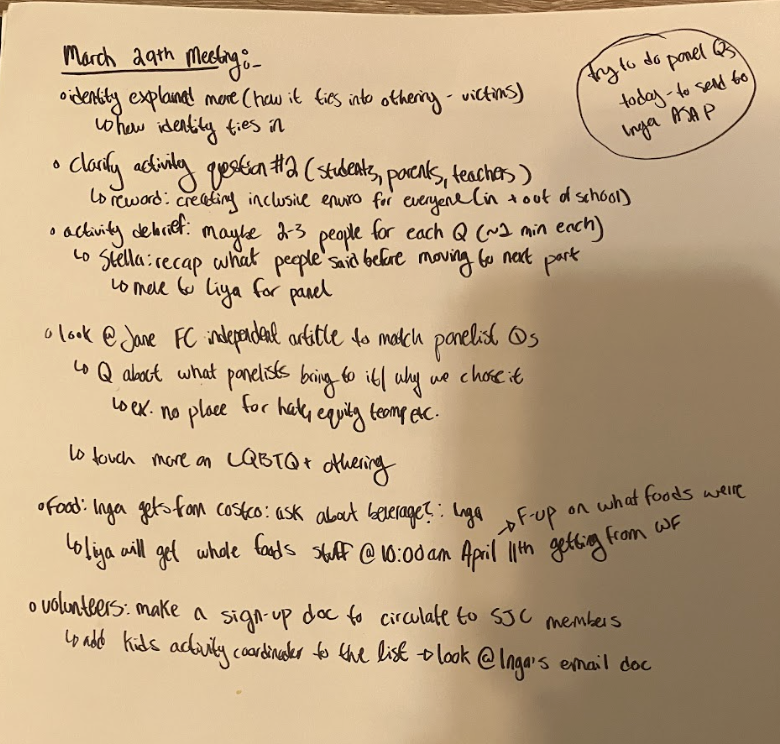 March 29th Meeting:-
try to do panel Qs
today - to send to
Inga ASAP
◦ identity explained more (how it ties into othering - victims)
↳ how identity ties in
◦ clarify activity question #2 (students, parents, teachers)
↳ reward: creating inclusive enviro for everyone (in + out of school)
◦ activity debrief: maybe 2-3 people for each Q (~1 min each)
↳ Stella: recap what people said before moving to next part
↳ to Liya for panel
◦ look @ Jane FC independent article to match panelist Qs
↳ Q about what panelists bring to it / why we chose it
↳ ex. no place for hate, equity team, etc.
↳ touch more on LGBTQ+ othering
◦ Food: Inga gets from costco: ask about beverage?: Inga
→ F-up on what foods we're
↳ Liya will get whole foods stuff @ 10:00am April 11th getting from WF
◦ volunteers: make a sign-up doc to circulate to SJC members
↳ add kids activity coordinator to the list → look @ Inga's email doc